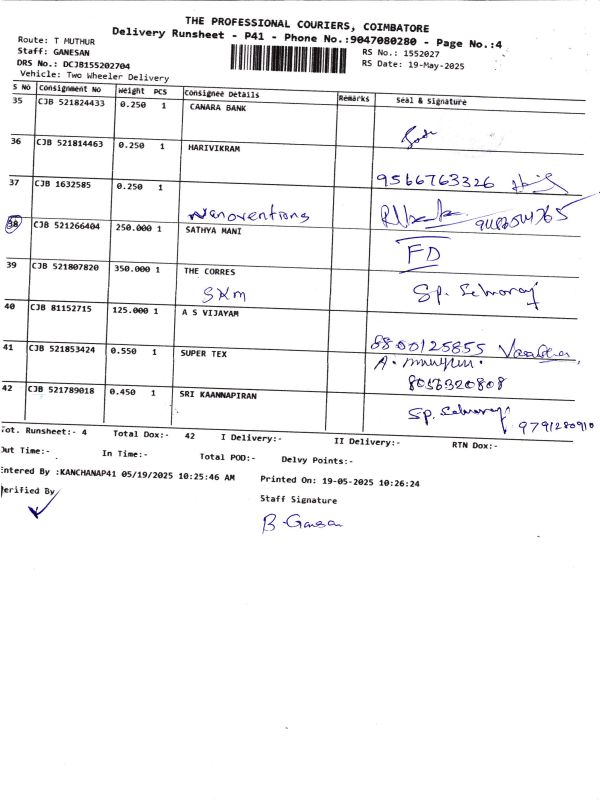 THE PROFESSIONAL COURIERS, COIMBATORE
Delivery Runsheet - P41 - Phone No.:9047080280 - Page No.:4
Route: T MUTHUR
RS No.: 1552027
Staff: GANESAN
RS Date: 19-May-2025
DRS No.: DCJB155202704
Vehicle: Two Wheeler Delivery
S No Consignment No Weight PCS Consignee Details Remarks Seal & Signature
35 CJB 521824433 0.250 1 CANARA BANK
36 CJB 521814463 0.250 1 HARIVIKRAM
9566763326
37 CJB 1632585 0.250 1
Nanoventions
38 CJB 521266404 250.000 1 SATHYA MANI
FD
39 CJB 521807820 350.000 1 THE CORRES
SKM Sp. Selvaraj
40 CJB 81152715 125.000 1 A S VIJAYAM
8800125855
41 CJB 521853424 0.550 1 SUPER TEX
8056320808
42 CJB 521789018 0.450 1 SRI KAANNAPIRAN
Sp. Selvaraj 9791280910
Tot. Runsheet:- 4 Total Dox:- 42 I Delivery:- II Delivery:- RTN Dox:-
Out Time:- In Time:- Total POD:- Delvy Points:-
Entered By :KANCHANAP41 05/19/2025 10:25:46 AM Printed On: 19-05-2025 10:26:24
Verified By Staff Signature